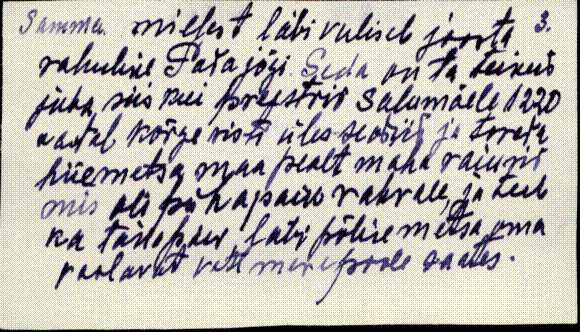 Samma. millest läbi vuliseb joosta 3.
rahulise Pada jõgi. Seda on ta teinud
juba siis kui preestrid Salumäele 1220
aastal kõrge risti üles seadsid ja toreda
hiiemetsa maa pealt maha raiusid
mis oli püha paik rahvale, ja teeb
ka tänapäev läbi põlise metsa oma
vaolavat vett mere poole saates.